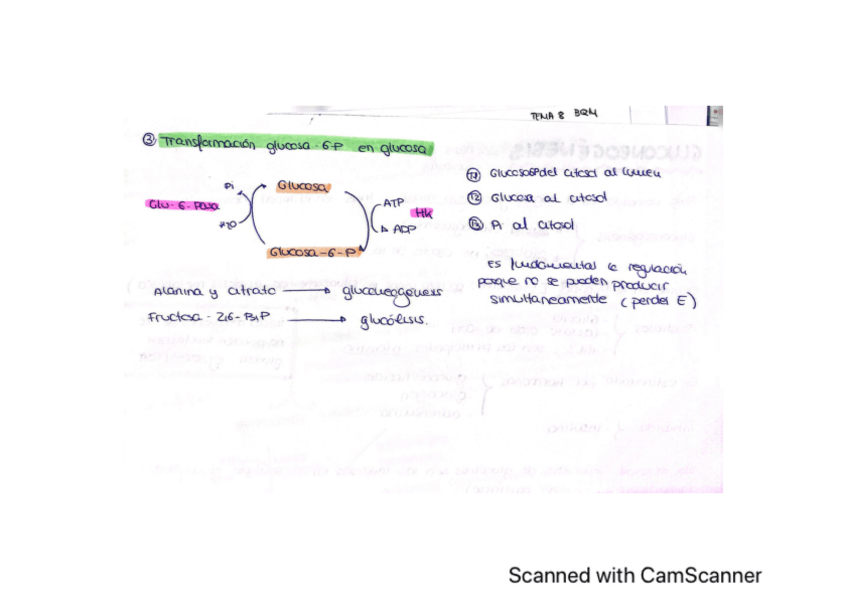 TEMA 8 BQM
③ Transformación glucosa-6-P en glucosa
Pi
Glucosa
Glu-6-Pasa
H2O
ATP
HK
ADP
Glucosa-6-P
Alanina y citrato → gluconeogénesis
Fructosa-2,6-BiP → glucólisis.
T1 Glucosa6P del citosol al lumen
T2 Glucosa al citosol
T3 Pi al citosol
Es fundamental la regulación
porque no se pueden producir
simultaneamente (perder E)
Scanned with CamScanner